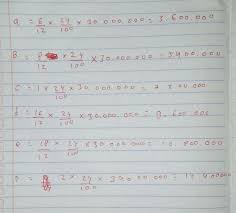 a = 6/12 x 24/100 x 30.000.000 = 3.600.000
B = 9/12 x 24/100 x 30.000.000 = 5400.000
C = 1 x 24/100 x 30.000.000 = 7 200.000
d = 16/12 x 24/100 x 30.000.000 = 9.600.000
e = 18/12 x 24/100 x 30.000.000 = 10.800.000
2 x 24/100 x 30.000.000 = 14.400000